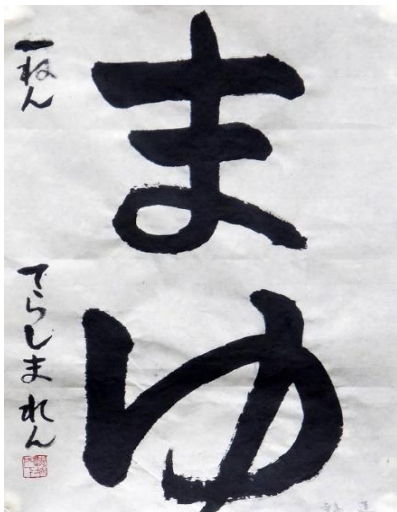 まゆ
一ねん
てらしまれん